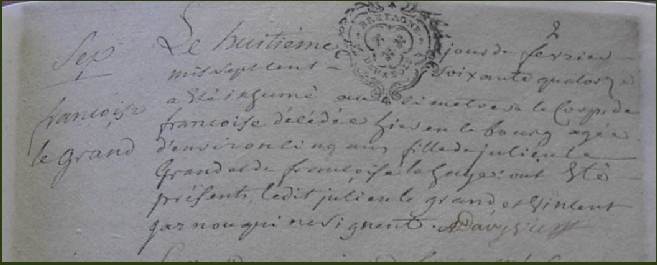 2
Sep
françoise
le grand
BRETAGNE
Le huitième jour de fevrier
mil sept cent soixante quatorze
a été inhumé au cimetiere le Corps de
françoise décédée hier en le bourg agée
d'environ cinq ans fille de julien le
Grand et de françoise ont été
présents ledit julien le grand et Vincent
qui ne signent.